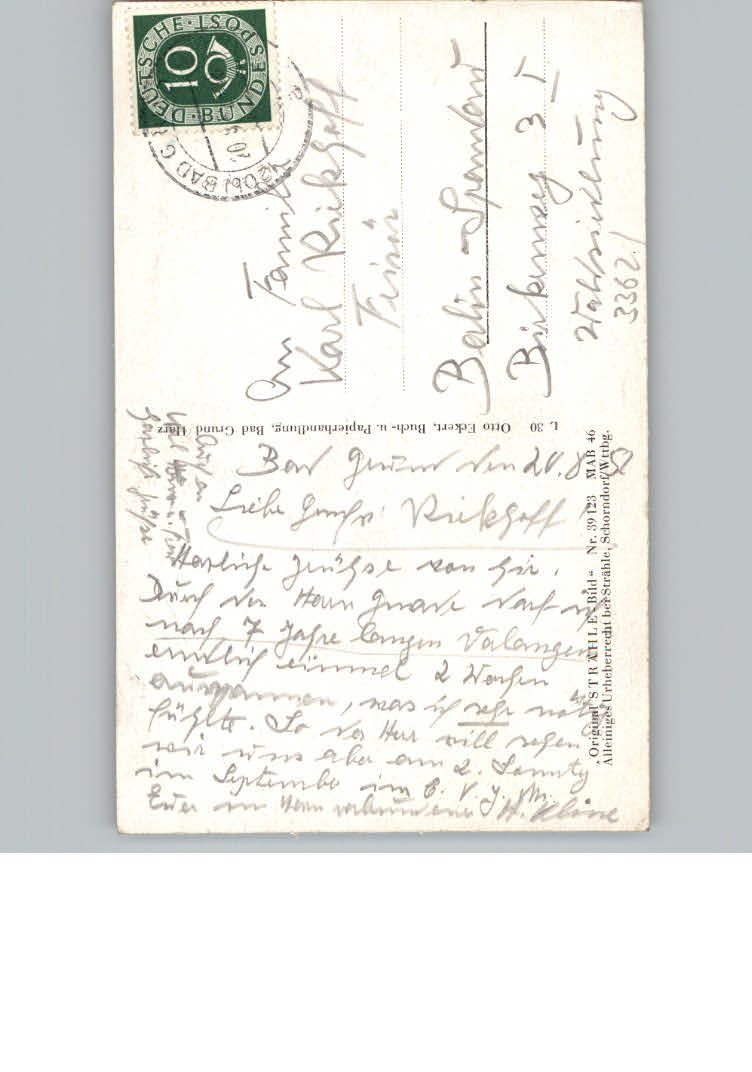 Bad Grund den 20.8.52
Liebe Geschw. Riekhoff
Herzliche Grüsse von hier.
Durch des Herrn Gnade darf ich
nach 7 Jahre langem Verlangen
endlich einmal 2 Wochen
ausspannen, was ich sehr nötig
fühlte. So der Herr will sehen
wir uns aber am 2. Sonntg
im September im C. V. J. M.
Euer im Herrn verbundener H.
Auch an
herzliche Grüße
DEUTSCHE BUNDESPOST
10
(20b) BAD G
An Familie
Karl Riekhoff
Berlin-Spandau
Birkenweg 3 I
Waldsiedlung
3362
L 30 Otto Eckert, Buch- u. Papierhandlung, Bad Grund Harz
„Original STRÄHLE-Bild“ Nr. 39123 MAB 46
Alleiniges Urheberrecht bei Strähle, Schorndorf/Wttbg.